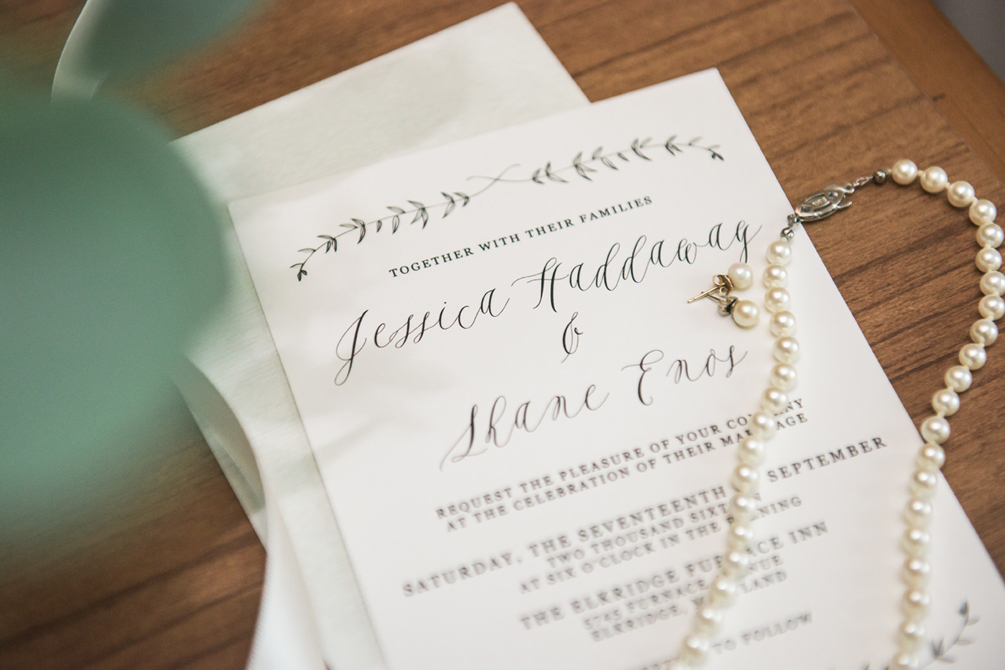 TOGETHER WITH THEIR FAMILIES
Jessica Haddaway
&
Shane Enos
REQUEST THE PLEASURE OF YOUR COMPANY
AT THE CELEBRATION OF THEIR MARRIAGE
SATURDAY, THE SEVENTEENTH OF SEPTEMBER
TWO THOUSAND SIXTEEN
AT SIX O'CLOCK IN THE EVENING
THE ELKRIDGE FURNACE INN
5745 FURNACE AVENUE
ELKRIDGE, MARYLAND
TO FOLLOW